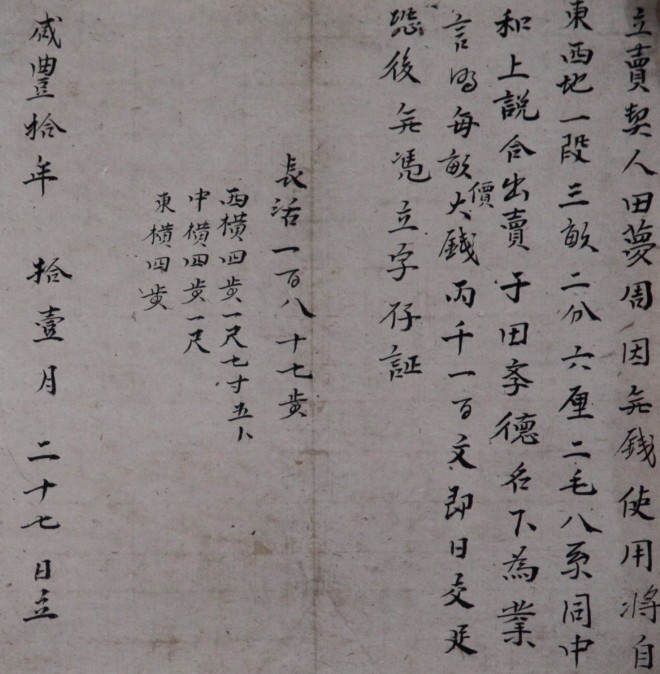 立賣契人田夢周因無錢使用將自
東西地一段三畝二分六厘二毛八系同中
和上說合出賣于田孝德名下為業
言明每畝價大錢丙千一百文即日交足
恐後無憑立字存証
長活一百八十七步
西横四步一尺七寸五卜
中横四步一尺
東横四步
咸豐拾年 拾壹月 二十七日立